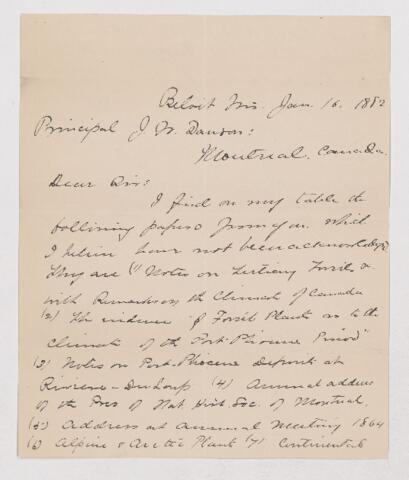 Beloit Wis. Jan. 16. 1882
Principal J. W. Dawson:
Montreal. Canada.
Dear Sir:
I find on my table the
following papers from you which
I believe have not been acknowledged.
They are (1) Notes on Tertiary Fossils &
with Remarks on the Climate of Canada
(2) The evidence of Fossil Plants as to the
Climate of the Post-Pliocene Period"
(3) Notes on Post-Pliocene Deposits at
Riviere-Du-Loup (4) Annual address
of the Pres of Nat. Hist. Soc. of Montreal.
(5) Address at annual meeting 1864
(6) Alpine & Arctic Plants (7) Continental